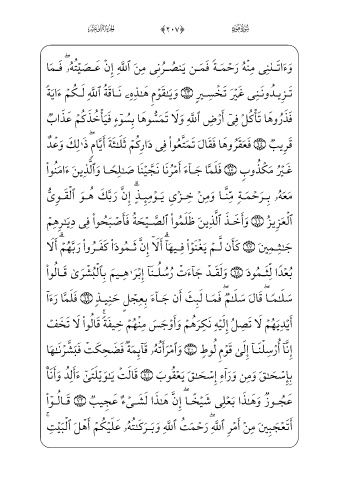 سُورَةُ هُودٍ ﴿٢٠٧﴾ الجُزْءُ الثَّانِي عَشَرَ
وَءَاتَىٰنِي مِنْهُ رَحْمَةً فَمَن يَنصُرُنِي مِنَ ٱللَّهِ إِنْ عَصَيْتُهُۥ ۖ فَمَا
تَزِيدُونَنِي غَيْرَ تَخْسِيرٍ ۝ وَيَٰقَوْمِ هَٰذِهِۦ نَاقَةُ ٱللَّهِ لَكُمْ ءَايَةً
فَذَرُوهَا تَأْكُلْ فِىٓ أَرْضِ ٱللَّهِ وَلَا تَمَسُّوهَا بِسُوٓءٍ فَيَأْخُذَكُمْ عَذَابٌ
قَرِيبٌ ۝ فَعَقَرُوهَا فَقَالَ تَمَتَّعُوا۟ فِى دَارِكُمْ ثَلَٰثَةَ أَيَّامٍ ۖ ذَٰلِكَ وَعْدٌ
غَيْرُ مَكْذُوبٍ ۝ فَلَمَّا جَآءَ أَمْرُنَا نَجَّيْنَا صَٰلِحًا وَٱلَّذِينَ ءَامَنُوا۟
مَعَهُۥ بِرَحْمَةٍ مِّنَّا وَمِنْ خِزْىِ يَوْمِئِذٍ ۗ إِنَّ رَبَّكَ هُوَ ٱلْقَوِىُّ
ٱلْعَزِيزُ ۝ وَأَخَذَ ٱلَّذِينَ ظَلَمُوا۟ ٱلصَّيْحَةُ فَأَصْبَحُوا۟ فِى دِيَٰرِهِمْ
جَٰثِمِينَ ۝ كَأَن لَّمْ يَغْنَوْا۟ فِيهَآ ۗ أَلَآ إِنَّ ثَمُودَا۟ كَفَرُوا۟ رَبَّهُمْ ۗ أَلَا
بُعْدًا لِّثَمُودَ ۝ وَلَقَدْ جَآءَتْ رُسُلُنَآ إِبْرَٰهِيمَ بِٱلْبُشْرَىٰ قَالُوا۟
سَلَٰمًا ۖ قَالَ سَلَٰمٌ ۖ فَمَا لَبِثَ أَن جَآءَ بِعِجْلٍ حَنِيذٍ ۝ فَلَمَّا رَءَآ
أَيْدِيَهُمْ لَا تَصِلُ إِلَيْهِ نَكِرَهُمْ وَأَوْجَسَ مِنْهُمْ خِيفَةً ۚ قَالُوا۟ لَا تَخَفْ
إِنَّآ أُرْسِلْنَآ إِلَىٰ قَوْمِ لُوطٍ ۝ وَٱمْرَأَتُهُۥ قَآئِمَةٌ فَضَحِكَتْ فَبَشَّرْنَٰهَا
بِإِسْحَٰقَ وَمِن وَرَآءِ إِسْحَٰقَ يَعْقُوبَ ۝ قَالَتْ يَٰوَيْلَتَىٰٓ ءَأَلِدُ وَأَنَا۠
عَجُوزٌ وَهَٰذَا بَعْلِى شَيْخًا ۖ إِنَّ هَٰذَا لَشَىْءٌ عَجِيبٌ ۝ قَالُوٓا۟
أَتَعْجَبِينَ مِنْ أَمْرِ ٱللَّهِ ۖ رَحْمَتُ ٱللَّهِ وَبَرَكَٰتُهُۥ عَلَيْكُمْ أَهْلَ ٱلْبَيْتِ ۚ